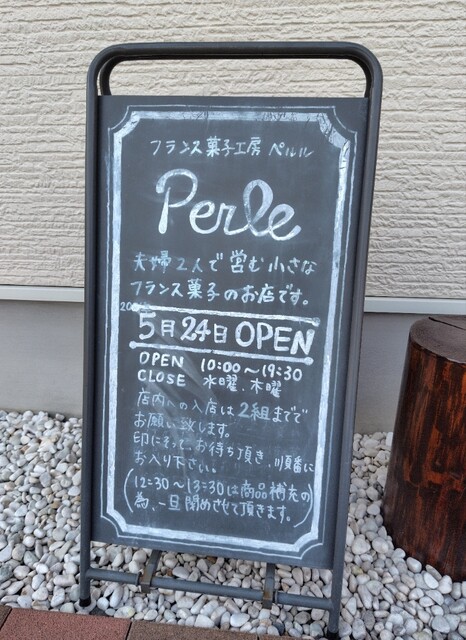 フランス菓子工房 ペルル
Perle
夫婦2人で営む小さな
フランス菓子のお店です。
5月24日 OPEN
OPEN 10:00～19:30
CLOSE 水曜、木曜
店内への入店は2組までで
お願い致します。
印にそって、お待ち頂き、順番に
お入り下さい。
(12:30～13:30は商品補充の
為、一旦閉めさせて頂きます。)